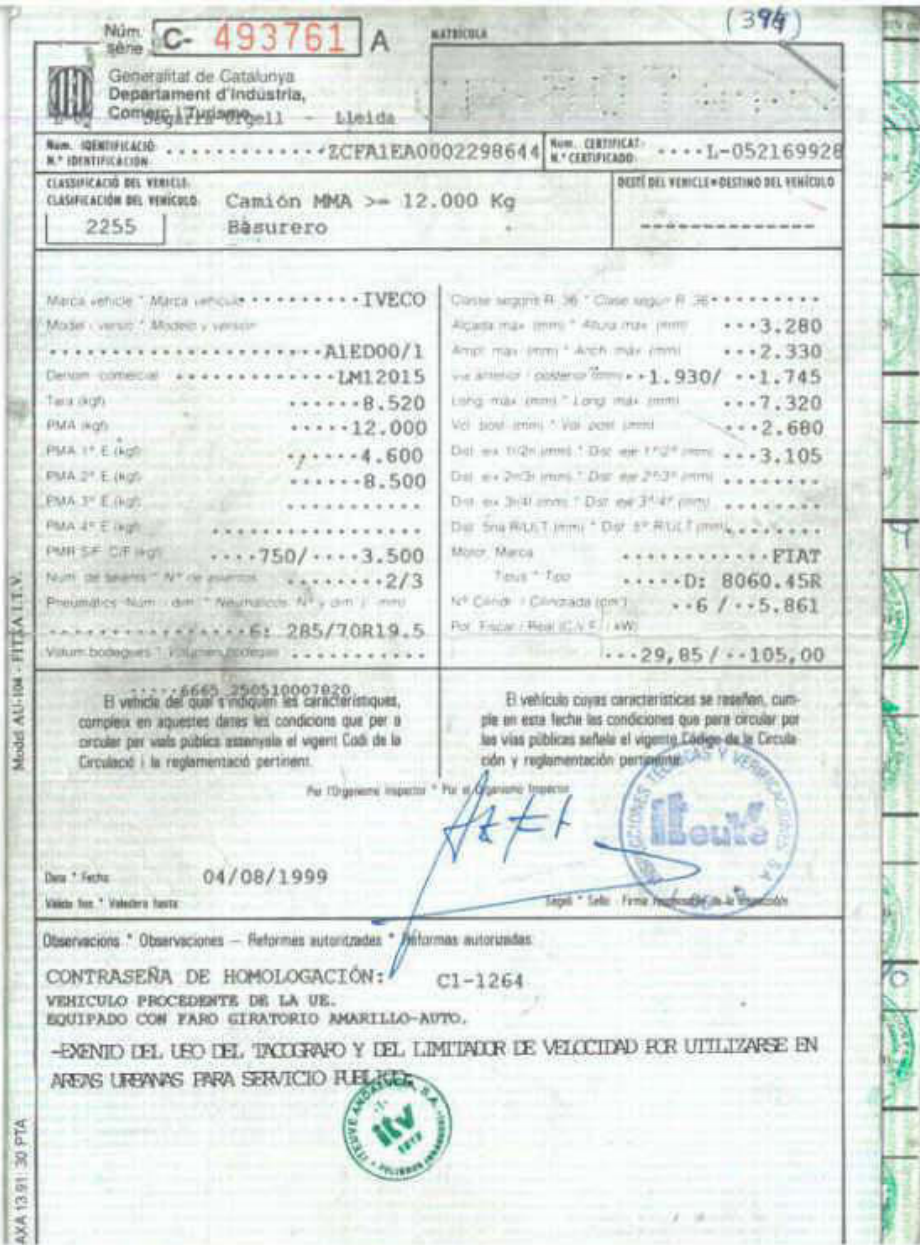 (394)
Núm. sèrie C- 493761 A
MATRÍCULA
Generalitat de Catalunya
Departament d'Indústria,
Comerç i Turisme
Segarra-Urgell - Lleida
Núm. IDENTIFICACIÓ
N.º IDENTIFICACIÓN ZCFA1EA0002298644
Núm. CERTIFICAT
N.º CERTIFICADO L-052169928
CLASSIFICACIÓ DEL VEHICLE
CLASIFICACIÓN DEL VEHÍCULO
2255
Camión MMA >= 12.000 Kg
Basurero
DESTÍ DEL VEHICLE * DESTINO DEL VEHÍCULO
--------------
Marca vehicle * Marca vehículo IVECO
Model i versió * Modelo y versión
A1ED00/1
Denom. comercial LM12015
Tara (kgf) 8.520
PMA (kgf) 12.000
PMA 1º E (kgf) 4.600
PMA 2º E (kgf) 8.500
PMA 3º E (kgf)
PMA 4º E (kgf)
PMR S/F C/F (kgf) 750/ 3.500
Núm. de seients * Nº de asientos 2/3
Pneumàtics Núm. i dim. * Neumáticos Nº y dim. ( mm)
6: 285/70R19.5
Volum bodegues * Volumen bodegas
Classe segons R. 36 * Clase según R. 36
Alçada màx. (mm) * Altura máx. (mm) 3.280
Ampl. màx. (mm) * Anch. máx. (mm) 2.330
Via anterior / posterior (mm) 1.930/ 1.745
Long. màx. (mm) * Long. máx. (mm) 7.320
Vol. post. (mm) * Vol. post. (mm) 2.680
Dist. eix 1r/2n (mm) * Dist. eje 1º/2º (mm) 3.105
Dist. eix 2n/3r (mm) * Dist. eje 2º/3º (mm)
Dist. eix 3r/4t (mm) * Dist. eje 3º/4º (mm)
Motor, Marca FIAT
Tipus * Tipo D: 8060.45R
Nº Cilindr. / Cilindrada (cm³) 6 / 5.861
Pot. Fiscal / Real (C.V.F. / kW)
29,85 / 105,00
6665 250510007820
El vehicle del qual s'indiquen les característiques,
compleix en aquestes dates les condicions que per a
circular per vials públics assenyala el vigent Codi de la
Circulació i la reglamentació pertinent.
El vehículo cuyas características se reseñan, cum-
ple en esta fecha las condiciones que para circular por
las vías públicas señala el vigente Código de la Circula-
ción y reglamentación pertinente.
Per l'Organisme inspector * Por el Organismo Inspector
INSPECCIONES TECNICAS Y VERIFICACIONES S.A.
Data * Fecha 04/08/1999
Vàlida fins * Valedera hasta
Segell * Sello - Firma responsable de la inspección
Observacions * Observaciones — Reformes autoritzades * Reformas autorizadas:
CONTRASEÑA DE HOMOLOGACIÓN: C1-1264
VEHICULO PROCEDENTE DE LA UE.
EQUIPADO CON FARO GIRATORIO AMARILLO-AUTO.
-EXENTO DEL USO DEL TACOGRAFO Y DEL LIMITADOR DE VELOCIDAD POR UTILIZARSE EN
AREAS URBANAS PARA SERVICIO PUBLICO.
ITEUVE ANDALUCIA, S.A.
itv
Model AU-104 - FITXA I.T.V.
AXA 13.91. 30 PTA